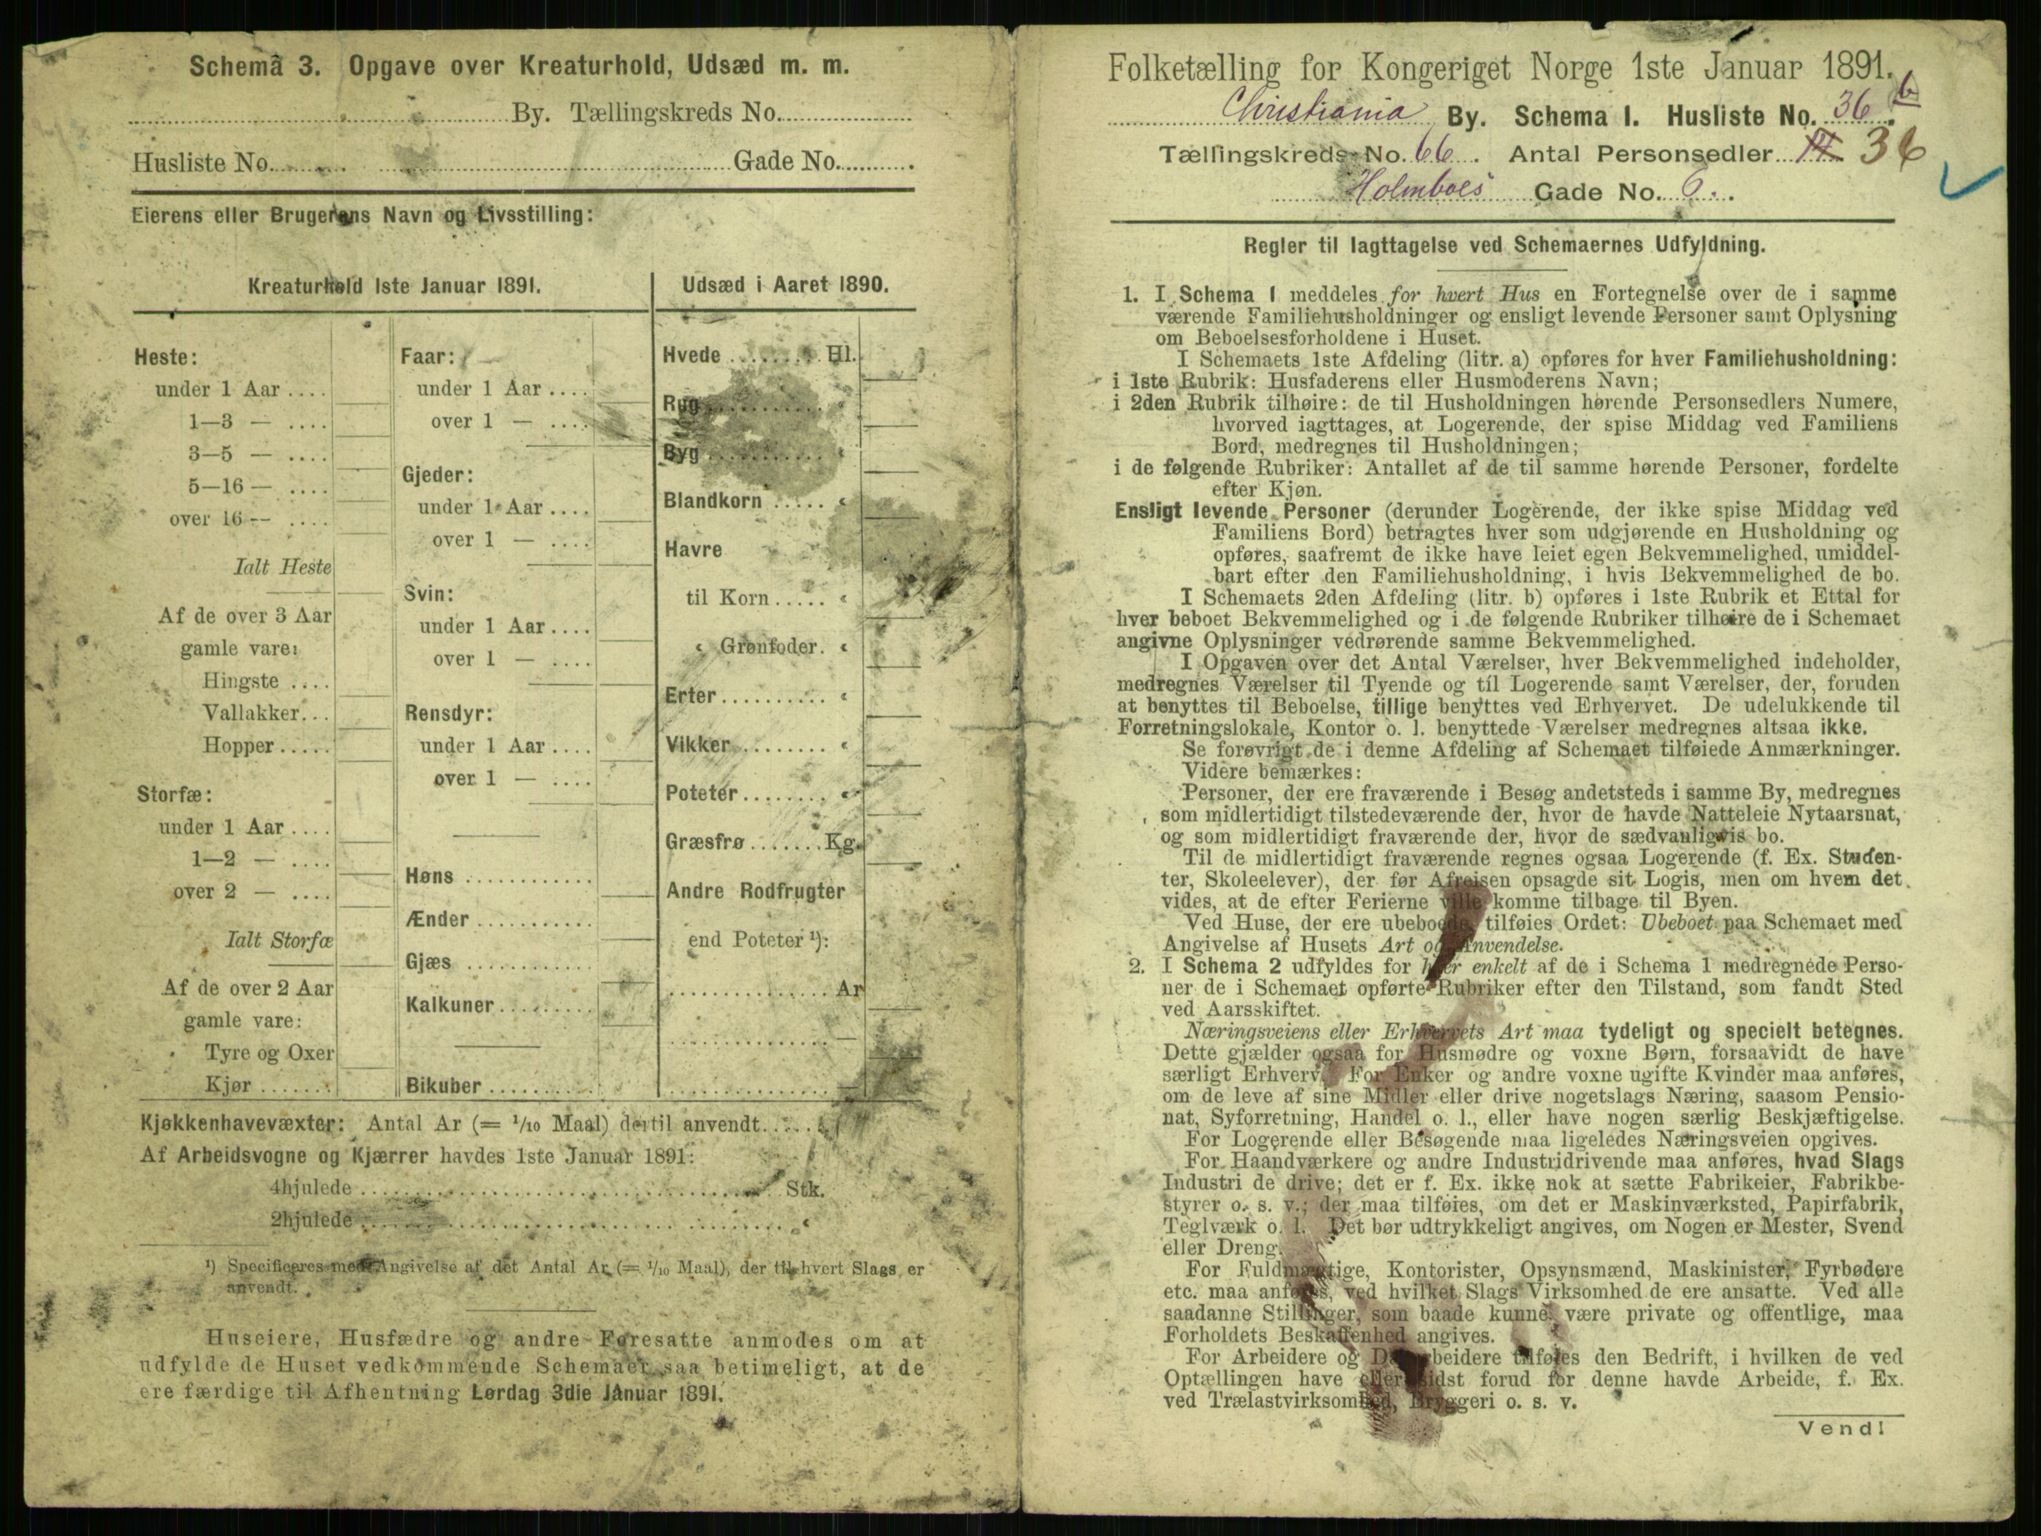 Schema 3. Opgave over Kreaturhold, Udsæd m. m.
By. Tællingskreds No.
Husliste No. Gade No.
Eierens eller Brugerens Navn og Livsstilling:
Kreaturhold 1ste Januar 1891.
Heste:
under 1 Aar
1—3 —
3—5 —
5—16 —
over 16 —
Ialt Heste
Af de over 3 Aar
gamle vare:
Hingste
Vallakker
Hopper
Storfæ:
under 1 Aar
1—2 —
over 2 —
Ialt Storfæ
Af de over 2 Aar
gamle vare:
Tyre og Oxer
Kjør
Faar:
under 1 Aar
over 1 —
Gjeder:
under 1 Aar
over 1 —
Svin:
under 1 Aar
over 1 —
Rensdyr:
under 1 Aar
over 1 —
Høns
Ænder
Gjæs
Kalkuner
Bikuber
Udsæd i Aaret 1890.
Hvede Hl.
Rug "
Byg "
Blandkorn "
Havre
til Korn "
" Grønfoder "
Erter "
Vikker "
Poteter "
Græsfrø Kg.
Andre Rodfrugter
end Poteter ¹):
Ar
—
—
Kjøkkenhavevæxter: Antal Ar (= 1/10 Maal) dertil anvendt
Af Arbeidsvogne og Kjærrer havdes 1ste Januar 1891:
4hjulede Stk.
2hjulede "
¹) Specificeres med Angivelse af det Antal Ar (= 1/10 Maal), der til hvert Slags er
anvendt.
Huseiere, Husfædre og andre Foresatte anmodes om at
udfylde de Huset vedkommende Schemaer saa betimeligt, at de
ere færdige til Afhentning Lørdag 3die Januar 1891.
Folketælling for Kongeriget Norge 1ste Januar 1891.
Christiania By. Schema 1. Husliste No. 36 b.
Tællingskreds No. 66. Antal Personsedler 36
Holmboes Gade No. 6.
Regler til Iagttagelse ved Schemaernes Udfyldning.
1. I Schema 1 meddeles for hvert Hus en Fortegnelse over de i samme
værende Familiehusholdninger og ensligt levende Personer samt Oplysning
om Beboelsesforholdene i Huset.
I Schemaets 1ste Afdeling (litr. a) opføres for hver Familiehusholdning:
i 1ste Rubrik: Husfaderens eller Husmoderens Navn;
i 2den Rubrik tilhøire: de til Husholdningen hørende Personsedlers Numere,
hvorved iagttages, at Logerende, der spise Middag ved Familiens
Bord, medregnes til Husholdningen;
i de følgende Rubriker: Antallet af de til samme hørende Personer, fordelte
efter Kjøn.
Ensligt levende Personer (derunder Logerende, der ikke spise Middag ved
Familiens Bord) betragtes hver som udgjørende en Husholdning og
opføres, saafremt de ikke have leiet egen Bekvemmelighed, umiddel-
bart efter den Familiehusholdning, i hvis Bekvemmelighed de bo.
I Schemaets 2den Afdeling (litr. b) opføres i 1ste Rubrik et Ettal for
hver beboet Bekvemmelighed og i de følgende Rubriker tilhøire de i Schemaet
angivne Oplysninger vedrørende samme Bekvemmelighed.
I Opgaven over det Antal Værelser, hver Bekvemmelighed indeholder,
medregnes Værelser til Tyende og til Logerende samt Værelser, der, foruden
at benyttes til Beboelse, tillige benyttes ved Erhvervet. De udelukkende til
Forretningslokale, Kontor o. l. benyttede Værelser medregnes altsaa ikke.
Se forøvrigt de i denne Afdeling af Schemaet tilføiede Anmærkninger.
Videre bemærkes:
Personer, der ere fraværende i Besøg andetsteds i samme By, medregnes
som midlertidigt tilstedeværende der, hvor de havde Natteleie Nytaarsnat,
og som midlertidigt fraværende der, hvor de sædvanligvis bo.
Til de midlertidigt fraværende regnes ogsaa Logerende (f. Ex. Studen-
ter, Skoleelever), der før Afreisen opsagde sit Logis, men om hvem det
vides, at de efter Ferierne ville komme tilbage til Byen.
Ved Huse, der ere ubeboede, tilføies Ordet: Ubeboet paa Schemaet med
Angivelse af Husets Art og Anvendelse.
2. I Schema 2 udfyldes for hver enkelt af de i Schema 1 medregnede Perso-
ner de i Schemaet opførte Rubriker efter den Tilstand, som fandt Sted
ved Aarsskiftet.
Næringsveiens eller Erhvervets Art maa tydeligt og specielt betegnes.
Dette gjælder ogsaa for Husmødre og voxne Børn, forsaavidt de have
særligt Erhverv. For Enker og andre voxne ugifte Kvinder maa anføres,
om de leve af sine Midler eller drive nogetslags Næring, saasom Pensio-
nat, Syforretning, Handel o. l., eller have nogen særlig Beskjæftigelse.
For Logerende eller Besøgende maa ligeledes Næringsveien opgives.
For Haandværkere og andre Industridrivende maa anføres, hvad Slags
Industri de drive; det er f. Ex. ikke nok at sætte Fabrikeier, Fabrikbe-
styrer o. s. v.; der maa tilføies, om det er Maskinværksted, Papirfabrik,
Teglværk o. l. Det bør udtrykkeligt angives, om Nogen er Mester, Svend
eller Dreng.
For Fuldmægtige, Kontorister, Opsynsmænd, Maskinister, Fyrbødere
etc. maa anføres, ved hvilket Slags Virksomhed de ere ansatte. Ved alle
saadanne Stillinger, som baade kunne være private og offentlige, maa
Forholdets Beskaffenhed angives.
For Arbeidere og Dagarbeidere tilføies den Bedrift, i hvilken de ved
Optællingen have eller sidst forud for denne havde Arbeide, f. Ex.
ved Trælastvirksomhed, Bryggeri o. s. v.
Vend!